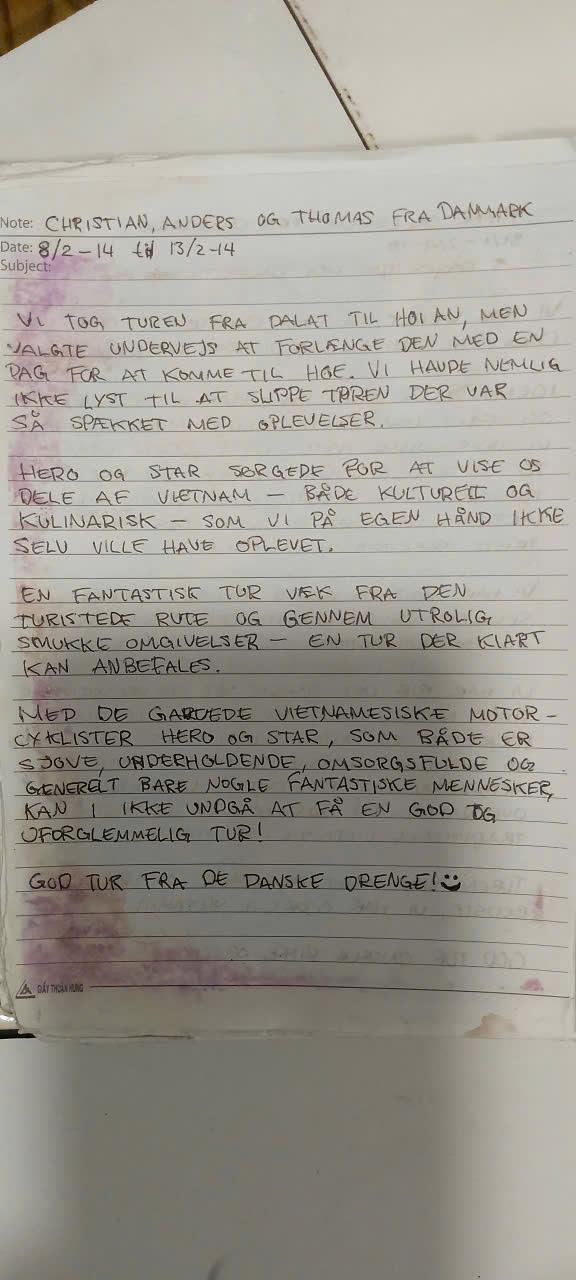 Note: CHRISTIAN, ANDERS OG THOMAS FRA DANMARK
Date: 8/2-14 til 13/2-14
Subject:
VI TOG TUREN FRA DALAT TIL HOI AN, MEN
VALGTE UNDERVEJS AT FORLÆNGE DEN MED EN
DAG FOR AT KOMME TIL HUE. VI HAVDE NEMLIG
IKKE LYST TIL AT SLIPPE TUREN DER VAR
SÅ SPÆKKET MED OPLEVELSER.
HERO OG STAR SØRGEDE FOR AT VISE OS
DELE AF VIETNAM – BÅDE KULTURELT OG
KULINARISK – SOM VI PÅ EGEN HÅND IKKE
SELV VILLE HAVE OPLEVET.
EN FANTASTISK TUR VÆK FRA DEN
TURISTEDE RUTE OG GENNEM UTROLIG
SMUKKE OMGIVELSER – EN TUR DER KLART
KAN ANBEFALES.
MED DE GARVEDE VIETNAMESISKE MOTOR-
CYKLISTER HERO OG STAR, SOM BÅDE ER
SJOVE, UNDERHOLDENDE, OMSORGSFULDE OG
GENERELT BARE NOGLE FANTASTISKE MENNESKER,
KAN I IKKE UNDGÅ AT FÅ EN GOD OG
UFORGLEMMELIG TUR!
GOD TUR FRA DE DANSKE DRENGE! ☺
GIẤY THUẬN HƯNG